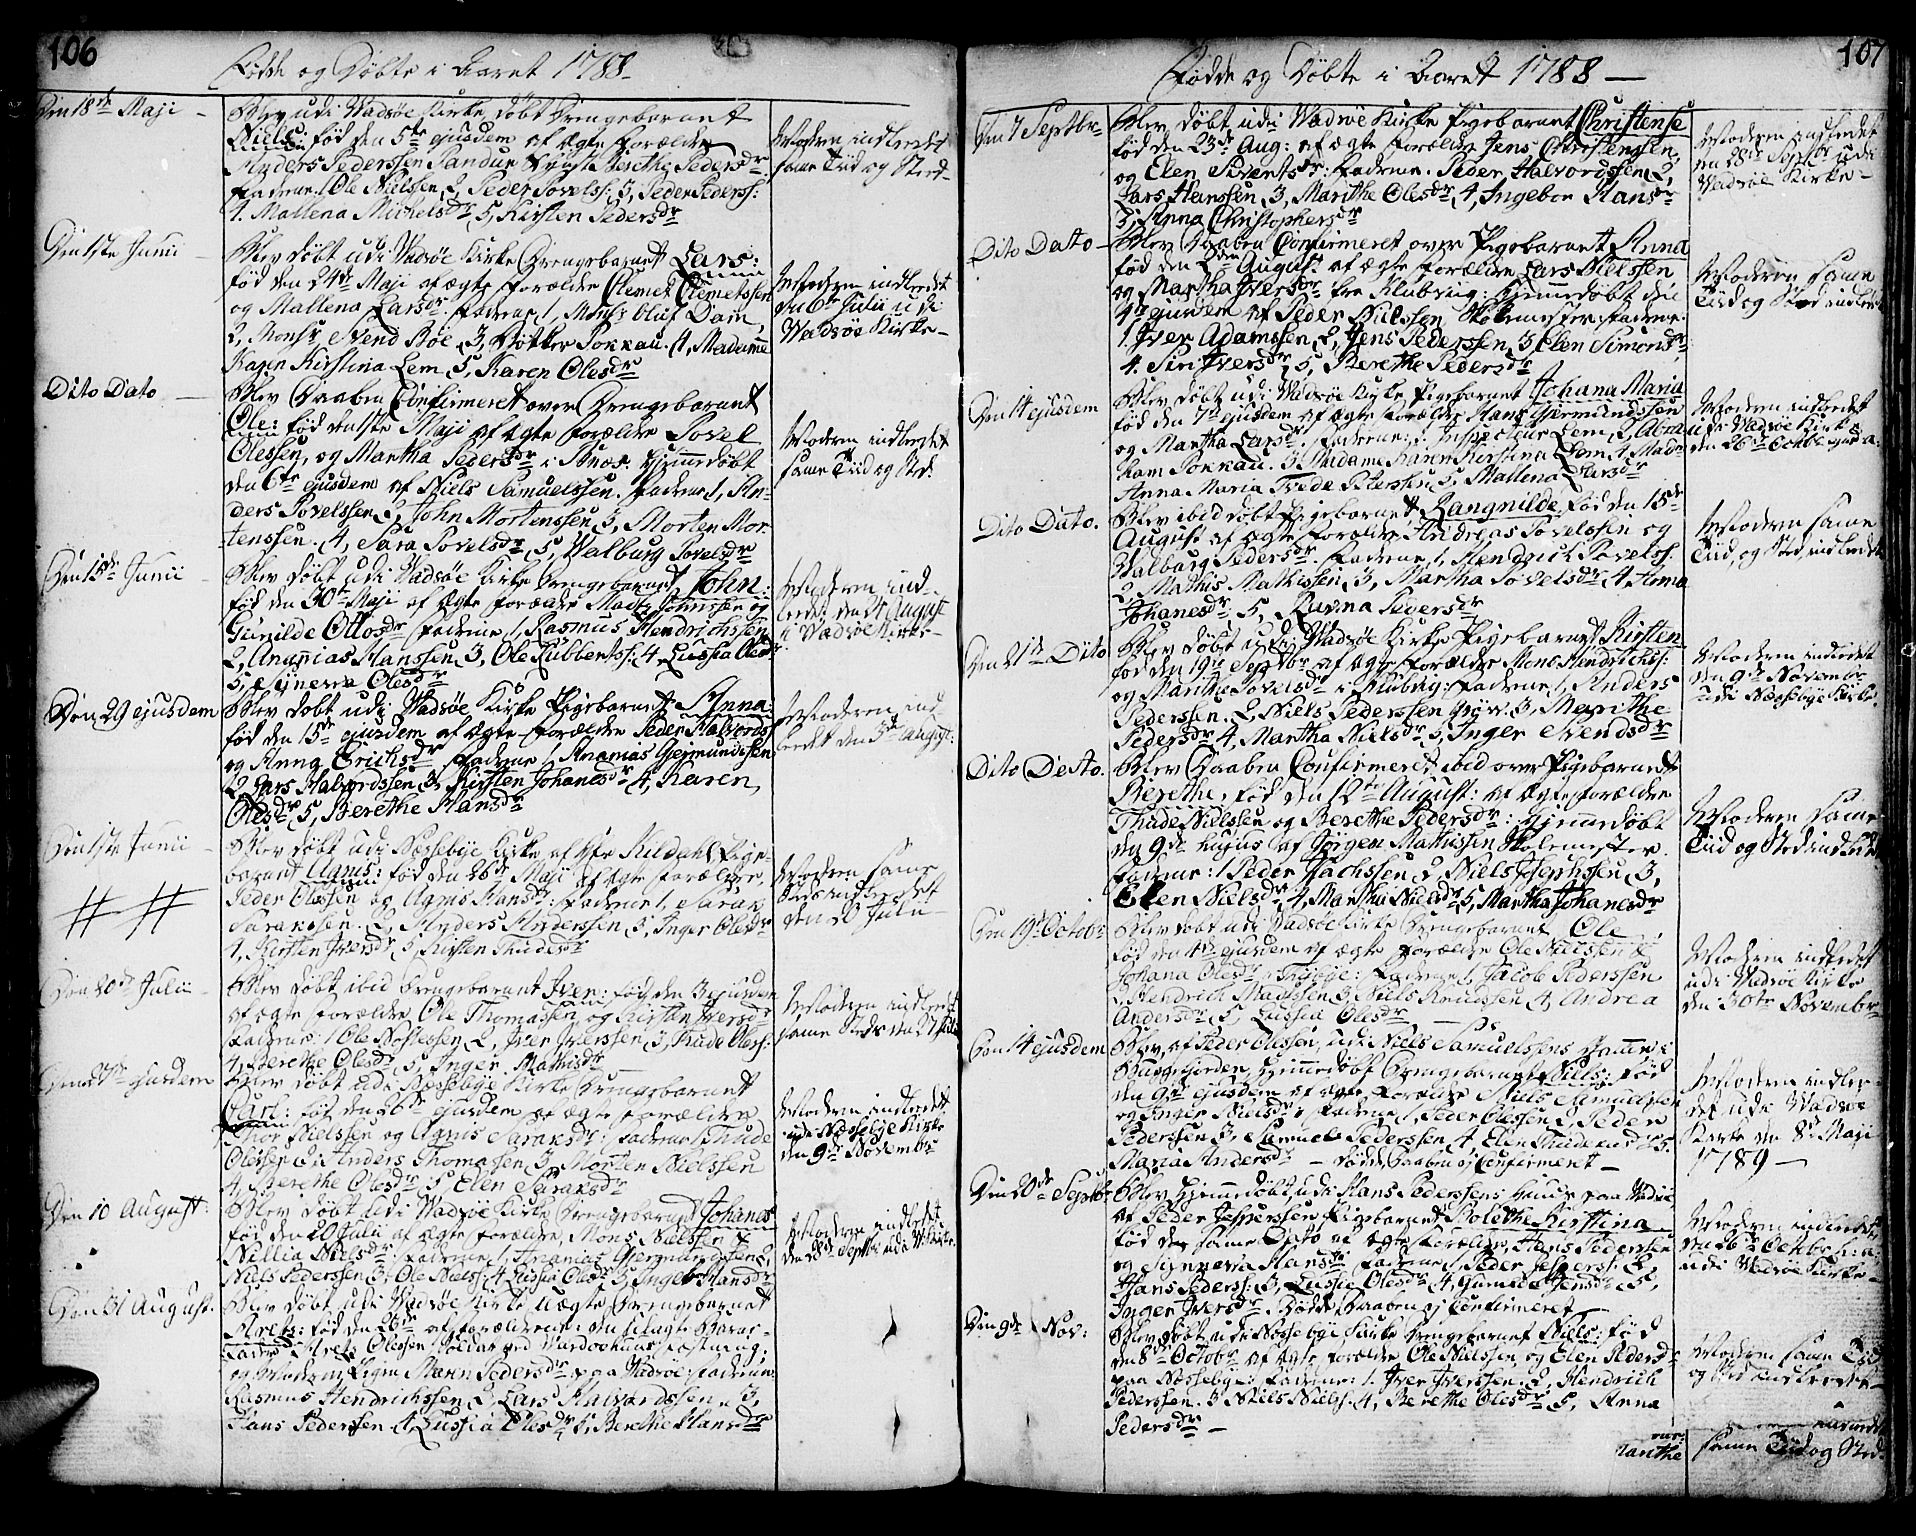 106
Fødde og Døbte i Aaret 1788
Den 18de Maji
Blev udi Wadsøe Kirke døbt Drengebarnet
Niels: fød den 5te ejusdem af ægte Forældre
Anders Pederssen Berethe Pedersdr
Faderne 1, Ole Nielssen, 2, Peder Povelss: 3, Peder Pederss:
4. Mallena Michelsdr 5, Kirsten Pedersdr
Moderen indleedet
same Tiid og Sted
Den 1ste Junii
Blev døbt udi Wadsøe Kirke Drengebarnet Lars:
fød den 24de Maji af ægte Forældre Clemet Clemetssen
og Mallena Larsdr. Faderne 1, Monsr: Oluf Dam,
2, Monsr Svend Bøe, 3, Pokkau. 4, Madame
Karen Kirstina Lem 5, Karen Olesdr
Moderen indleedet
den 6te Julii udi
Wadsøe Kirke
Dito Dato
Blev Daaben Confirmeret over Drengebarnet
Ole: fød den 1ste Maji af ægte Forældre Povel
Olessen, og Martha Pedersdr i Hjemmedøbt
den 6te ejusdem af Niels Samuelssen. Faderne 1, An-
ders Povelssen 2, John Mortenssen 3, Morten Mor-
tenssen. 4, Sara Povelsdr 5, Walburg Povelsdr
Moderen indleedet
same Tiid og Sted.
Den 15de Junii
Blev døbt udi Wadsøe Kirke Drengebarnet John:
fød den 30te Maji af ægte Forældre Johnssen og
Gunilde Ottosdr Faderne 1, Rasmus Hendrichssen
2, Ananias Hanssen, 3, Ole 4, Lussia Olesdr
5, Synerva Olesdr
Moderen ind-
leedet den 24 August
i Wadsøe Kirke
Den 29 ejusdem
Blev døbt udi Wadsøe Kirke Pigebarnet Anna:
fød den 15de ejusdem af ægte Forældre Peder Halvords:
og Anna Erichsdr. Faderne 1, Ananias Gjermundssen
2 Lars Halvordssen, 3, Kirsten Johanesdr 4, Karen
Olesdr 5, Berethe Hansdr
Moderen ind
leedt den 3de August:
Den 1ste Junii
Blev døbt udi Næssebye Kirke af Hr Kildahl Pige-
barnet Agnis: fød den 26de Maji af ægte Forældre,
Peder Olessen og Agnis Hansdr: Faderne 1, Sarak
Sarakssen. 2, Anders Anderssen, 3, Inger Olesdr
4, Kirsten Iversdr 5, Kirsten Thudesdr
Moderen same
Sted indleedet
den 20 Julii
Den 20de Julii
Blev døbt ibid Drengebarnet Iver: fød den 3 ejusdem
af ægte Forældre Ole Thomassen og Kirsten Iversdr
Faderne: 1, Ole 2, Iver Iverssen, 3, Thude Oless:
4, Berethe Olesdr 5, Inger Mathisdr
Moderen indleedt
same Sted den 27 Julii
Den 27de ejusdem
Blev døbt udi Næssebye Kirke Drengebarnet
Carl: fød den 26de ejusdem af ægte Forældre
Thor Nielssen og Agnis Saraksdr: Faderne 1, Thude
Olessen 2, Anders Thomassen, 3, Morten Nielssen
4, Berethe Olesdr 5 Elen Saraksdr
Moderen indleedet
udi Næssebye Kirke
den 9de Novembr
Den 10 August:
Blev døbt udi Wadsøe Kirke Drengebarnet Johanes
fød den 20 Julii af ægte Forældre, Mons Nielssen &
Nillia Nielsdr Faderne 1, Ananias Gjermundssen 2,
Niels Pederssen, 3, Ole Nielss: 4, Lussia Olesdr 5, Ingebr Hansdr
Moderen indleedet
den 28de Septbr udi W: Kirke.
Den 31 August.
Blev døbt udi Wadsøe Kirke Uægte Drengebarnet
Arett: fød den 26de af Forældrene: den udlagte Barne-
Fader Arett Olessen, Soldat ved Wardoehuus Fæstning:
og Moderen Pigen Maren Pedersdr paa Wadsøe: Faderne
Rasmus Hendrichssen 2, Lars Halvordssen, 3,
Hans Pederssen, 4, Lussia Olesdr 5, Berethe Hansdr
107
Fødde og Døbte i Aaret 1788
Den 7 Septbr
Blev døbt udi Wadsøe Kirke Pigebarnet Christense
fød den 23de Aug: af ægte Forældre Jens Christenssen,
og Elen Sventsdr: Faderne. Peder Halvordssen, 2,
Lars Hanssen, 3, Marithe Olesdr 4, Ingebor Hansdr
5, Anna Christophersdr
Moderen indleedet
den 28de Septbr udi
Wadsøe Kirke
Dito Dato
Blev Daaben Confirmeret over Pigebarnet Anna
fød den 2den August af ægte Forældre Lars Nielssen
og Martha Iversdr fra Klubviig: Hjemmedøbt den
4de ejusdem af Peder Nielssen Skolemester. Faderne.
1 Iver Adamssen, 2, Jens Pederssen, 3, Elen Simonsdr
4. Siri Iversdr 5, Berethe Pedersdr
Moderen same
Tiid og Sted indleedt
Den 14 ejusdem
Blev døbt udi Wadsøe Kirke Pigebarnet Johana Maria
fød den 7de ejusdem af ægte Forældre Hans Gjermundssen
og Martha Larsdr. Faderne: 1, Inspecteur Lem, 2, Abra-
ham Pokkau. 3, Madame Karen Kirstina Lem, 4, Madm
Anna Maria Tvede Peterssen 5, Mallena Larsdr
Moderen indleedet
udi Wadsøe Kirke
den 26de Octobr
Dito Dato.
Blev ibid døbt Pigebarnet, Rangnilde, fød den 15de
August af ægte Forældre Andreas Povelssen og
Walburg Pedersdr. Faderne, 1, Hendrich Povelss.
2, Mathis Mathissen, 3, Martha Povelsdr 4, Anna
Johanesdr 5, Pedersdr
Moderen same
Tiid, og Sted, indleedt
Den 21de Dito
Blev døbt udi Wadsøe Kirke Pigebarnet Kirsten
fød den 19de Septbr af ægte Forældre Mons Hindrichss:
og Marithe Povelsdr i Klubvig: Faderne 1, Anders
Pederssen. 2, Niels Pederssen 3, Marithe
Pedersdr 4, Martha Nielsdr 5, Inger Svendsdr
Moderen indleedet
den 9de Novembr
udi Næssebye Kirke.
Dito Dato.
Blev Daaben Confirmeret, ibid over Pigebarnet
Berethe, fød den 12te August: af ægte Forældre
Thude Nielssen og Berethe Pedersdr: Hjemmedøbt
den 9de hujus af Jørgen Mathissen Skolemester.
Faderne: 1 Peder Isachssen, 2, Niels Josephssen, 3,
Elen Nielsdr 4, Martha Nielsdr 5, Martha Johanesdr
Moderen same
Tiid og Sted indleedt
Den 19de Octobr
Blev døbt udi Wadsøe Kirke Drengebarnet Ole
fød den 4de ejusdem af ægte Forældre Ole Nielssen &
Johana Olesdr i Faderne 1, Jacob Pederssen
2, Hendrich Madssen, 3, Niels Knudssen, 4, Andrea
Andersdr 5, Lussia Olesdr
Moderen indleedet
udi Wadsøe Kirke
den 30te Novembr
Den 14 ejusdem
Blev, af Peder Olessen, udi Niels Samuelssens Gamme i
Buggefiorden, Hjemmedøbt Drengebarnet Niels: fød
den 9de ejusdem af ægte Forældre Niels Samuelssen
og Inger Nielsdr Faderne 1, Peder Olessen 2, Peder
Pederssen, 3, Samuel Pederssen 4, Elen Thudesdr 5.
Maria Andersdr — døde, Daaben ej Confirmeret —
Moderen indlee-
det udi Wadsøe
Kirke den 8de Maji
1789
Den 20de Septbr
Blev Hjemmedøbt, udi Hans Pederssens Huus paa Wadsøe
af Peder Jesperssen Pigebarnet Bolethe Kirstina
fød den same Dato af ægte Forældre, Hans Pederssen
og Synnerva Hansdr Faderne, 1, Peder Jesperss: 2,
Hans Pederss: 3, Lussie Olesdr 4, Gunnild Jensdr 5,
Inger Iversdr: Døde, Daaben ej Confirmeret
Moderen indleedet
den 26de Octobr
udi Wadsøe Kirke
Den 9de Nov:
Blev døbt udi Næssebye Kirke Drengebarnet Niels: fød
den 8de Octobr af ægte Forældre Ole Nielssen og Elen Pedersdr
paa Næssebye: Faderne: 1. Iver Iverssen. 2, Hendrich
Pederssen. 3 Niels Nielss. 4, Berethe Olesdr 5, Anna
Pedersdr
Moderen same Tiid
og Sted indleedet
same Tiid og Sted